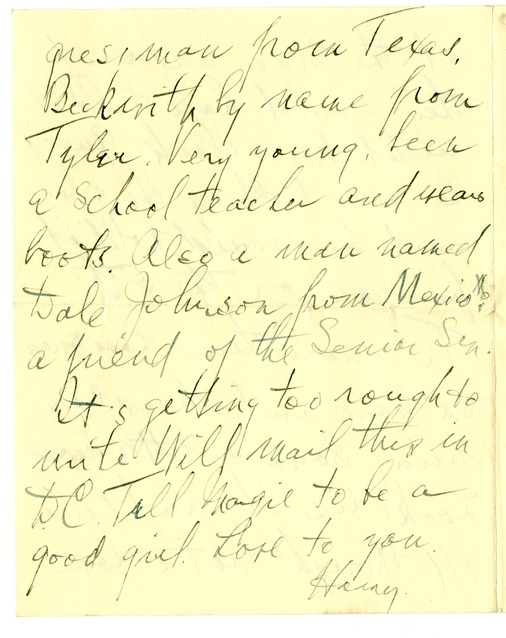 gressman from Texas.
Beckwith by name from
Tyler. Very young. been
a School teacher and wears
boots. Also a man named
Dale Johnson from Mexico Mo.
a friend of the Senior Sen.
It's getting too rough to
write Will mail this in
D.C. Tell Margie to be a
good girl. Love to you.
Harry.